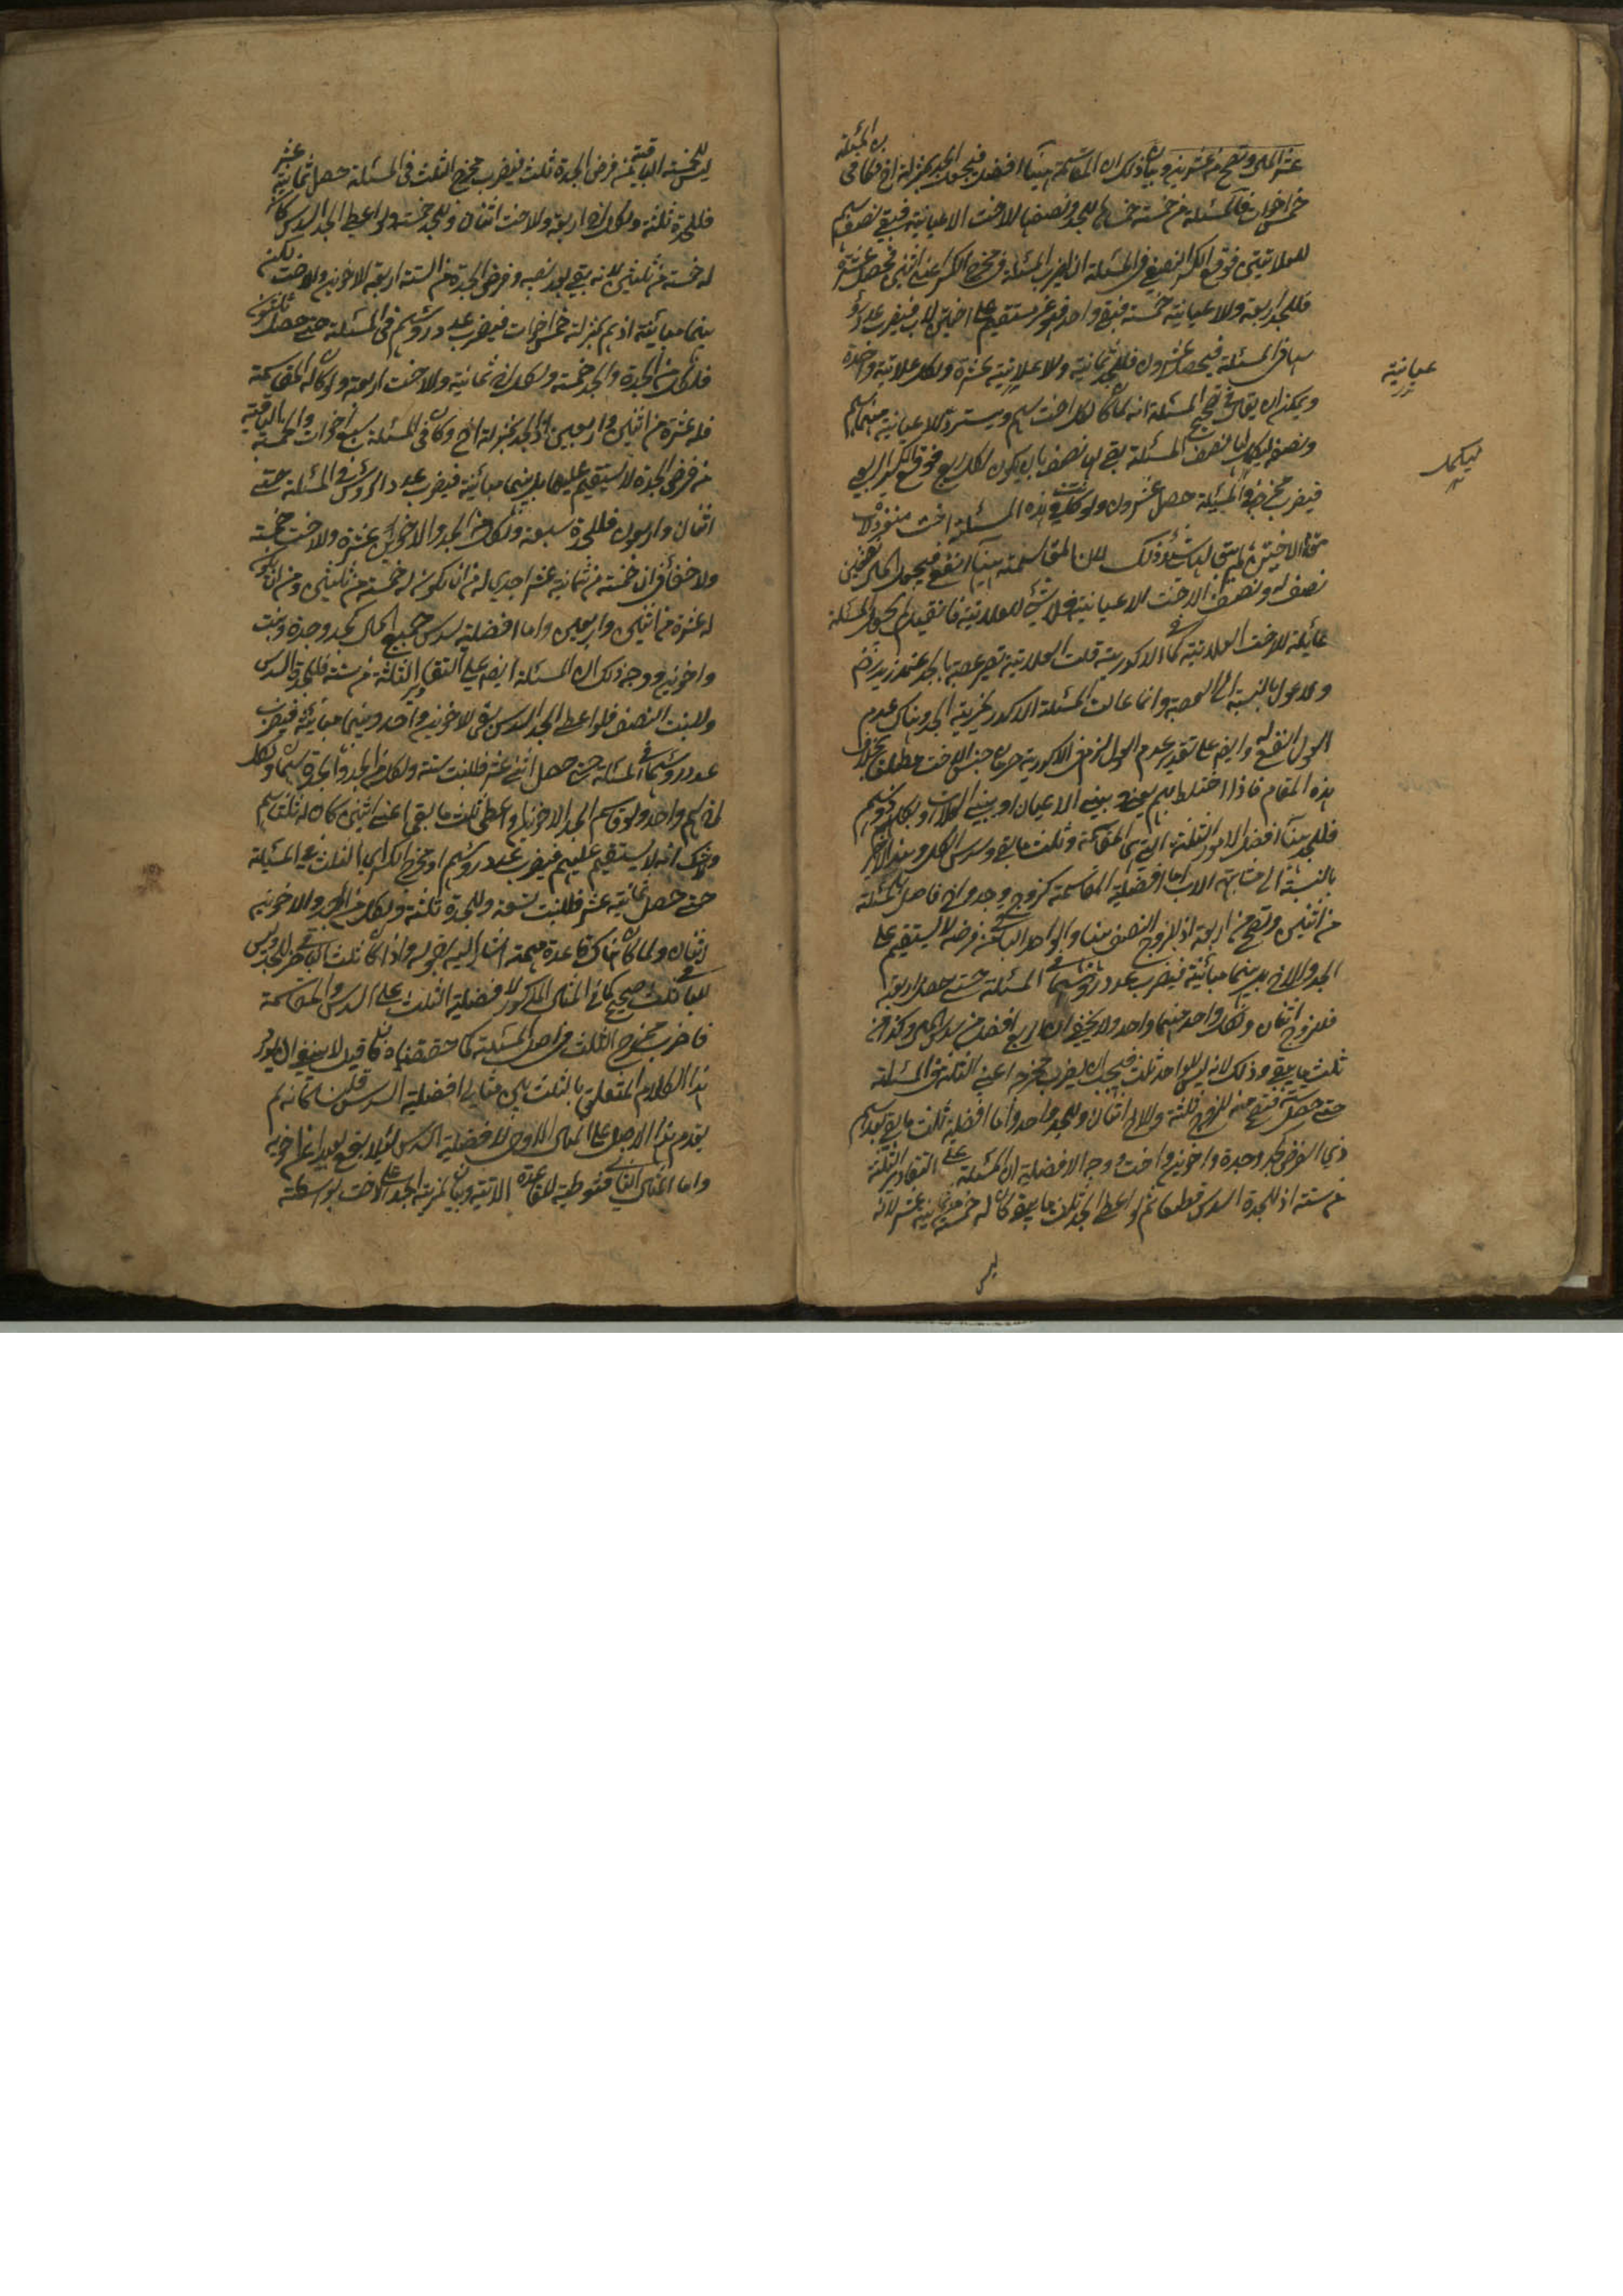 عشر المال وتصح من عشرين وبيان ذلك ان المقاسمة ههنا افضل فيجعل الجد بمنزلة اخ فكما في هذه المسئلة
خمس اخوات فالمسئلة من خمسة خمساها للجد ونصفها للاخت الاعيانية فبقي نصف سهم
للعلاتيتين فوقع الكسر النصف في المسئلة اذا يضرب المسئلة في مخرج الكسر اعني اثنين فحصل عشرة
فللجد اربعة وللاعيانية خمسة فبقي واحد فهو غير مستقيم على اختين لاب فيضرب عدد رؤ
سهما في المسئلة فيحصل عشرون فللجد ثمانية وللاعيانية عشرة ولكل علاتية واحدة
ويمكن ان يقال في تصحيح المسئلة انه لما كان لكل اخت سهم ويسترد للاعيانية منهما سهم
ونصف ليكمل لها نصف المسئلة بقي لهما نصف بان يكون لكل ربع فوقع الكسر الربع
فيضرب مخرجه في المسئلة حصل عشرون ولو كانت في هذه المسئلة اخت منفردة لاب
مقام الاختين لم يبق لها شيء وذلك لان المقاسمة ههنا انفع فيجعل المال نصفين
نصف له ونصف الاخت للاعيانية فلا شيء للعلاتية
عائلة للاخت العلاتية كما في الاكدرية قلت العلاتية تصير عصبة بالجد عند زيد رض
ولا عول بالنسبة الى العصبة وانما عالت المسئلة الاكدرية
العول انفع له وايض على تقدير عدم العول لزم في الاكدرية حرمان جنس الاخت مطلقا بخلاف
هذه المقام فاذا اختلط بهم يعني بنى الاعيان او بنى العلات او بكليهما ذو سهم
فللجد هنا افضل الامور الثلثة التي هي المقاسمة وثلث ما بقي وسدس الكل
بالنسبة الى اما افضلية المقاسمة كزوج وجد واخ فاصل المسئلة
من اثنين وتصح من اربعة اذ للزوج النصف منها والواحد الباقي من فرضه لا يستقيم على
الجد والاخ بل بينهما مباينة فيضرب عدد رؤسهما في المسئلة حتى حصل اربعة
فللزوج اثنان ولكل واحد منهما واحد ولا يخفى ان الربع افضل من سدس المال وكذا من
ثلث ما بقي وذلك لانه ليس للواحد ثلث فيجب ان يضرب مخرجه اعني الثلثة في المسئلة
حتى حصل ستة فتصح منه للزوج ثلثة وللاخ اثنان وللجد واحد واما افضلية ثلث ما بقي بعد سهم
ذي الفرض كجد وجدة واخوين واخت ووجه الافضلية ان المسئلة على التقادير الثلثة
من ستة اذ للجدة السدس قطعا ثم لو اعطي الجد ثلث ما يبقى كان له خمسة من ثمانية عشر لانه
ليس
عيانية
ليكمل
ليس للخمسة الباقية من فرض الجدة ثلث فيضرب مخرج الثلث في المسئلة حصل ثمانية عشر
فللجدة ثلثة ولكل اخ اربعة وللاخت اثنان وللجد خمسة ولو اعطي الجد السدس كان
له خمسة من ثلثين لانه بقي بعد نصيبه وفرض الجدة من الستة اربعة للاخوين والاخت لكن
بينهما مباينة اذ هم بمنزلة خمس اخوات فيضرب عدد رؤسهم في المسئلة حتى حصل ثلثون
فلكل من الجدة والجد خمسة ولكل اخ ثمانية وللاخت اربعة ولو كان له المقاسمة
فله عشرة من اثنين واربعين اذ الجد بمنزلة اخ وكان في المسئلة سبع اخوات والخمسة الباقية
من فرض الجدة لا يستقيم عليها بل بينهما مباينة فيضرب عدد الرؤس في المسئلة حتى
اثنان واربعون فللجدة سبعة ولكل من الجد والاخوين عشرة وللاخت خمسة
ولا خفاء في ان خمسة من ثمانية عشر اجدى له من ان يكون له خمسة من ثلثين ومن ان يكون
له عشرة من اثنين واربعين واما افضلية سدس جميع المال كجد وجدة وبنت
واخوين ووجه ذلك ان المسئلة ايض على التقادير الثلثة من ستة فللجدة السدس
وللبنت النصف فلو اعطي الجد السدس بقي للاخوين واحد وبينهما مباينة فيضرب
عدد رؤسهما في المسئلة حتى حصل اثنى عشر فللبنت ستة ولكل من الجد والجدة سهمان ولكل
اخ سهم واحد ولو قاسم الجد الاخوين او اعطي ثلث ما بقي اعني اثنين كان له ثلثا سهم
ولا شك انه لا يستقيم عليهم فيضرب عدد رؤسهم او مخرج الكسر اي الثلث في المسئلة
حتى حصل ثمانية عشر فللبنت تسعة وللجدة ثلثة ولكل من الجد والاخوين
اثنان ولما كان هناك قاعدة مهمة اشار اليه بقوله واذا كان ثلث الباقي خيرا للجد وليس
للباقي ثلث صحيح كما في المثال المذكور لافضلية الثلث على السدس والمقاسمة
فاضرب مخرج الثلث في اصل المسئلة كما حققناه فان قيل لا ينبغي ان يورد
هذا الكلام المتعلق بالثلث بين مثالي افضلية السدس قلت كانه لم
يقدم هذا الاصل على المثال الاول لافضلية السدس لئلا يقع بعيدا عن اخويه
واما المثال الثاني فتوطية للقاعدة الاتية وبيان لمزية الجد على الاخت بواسطة